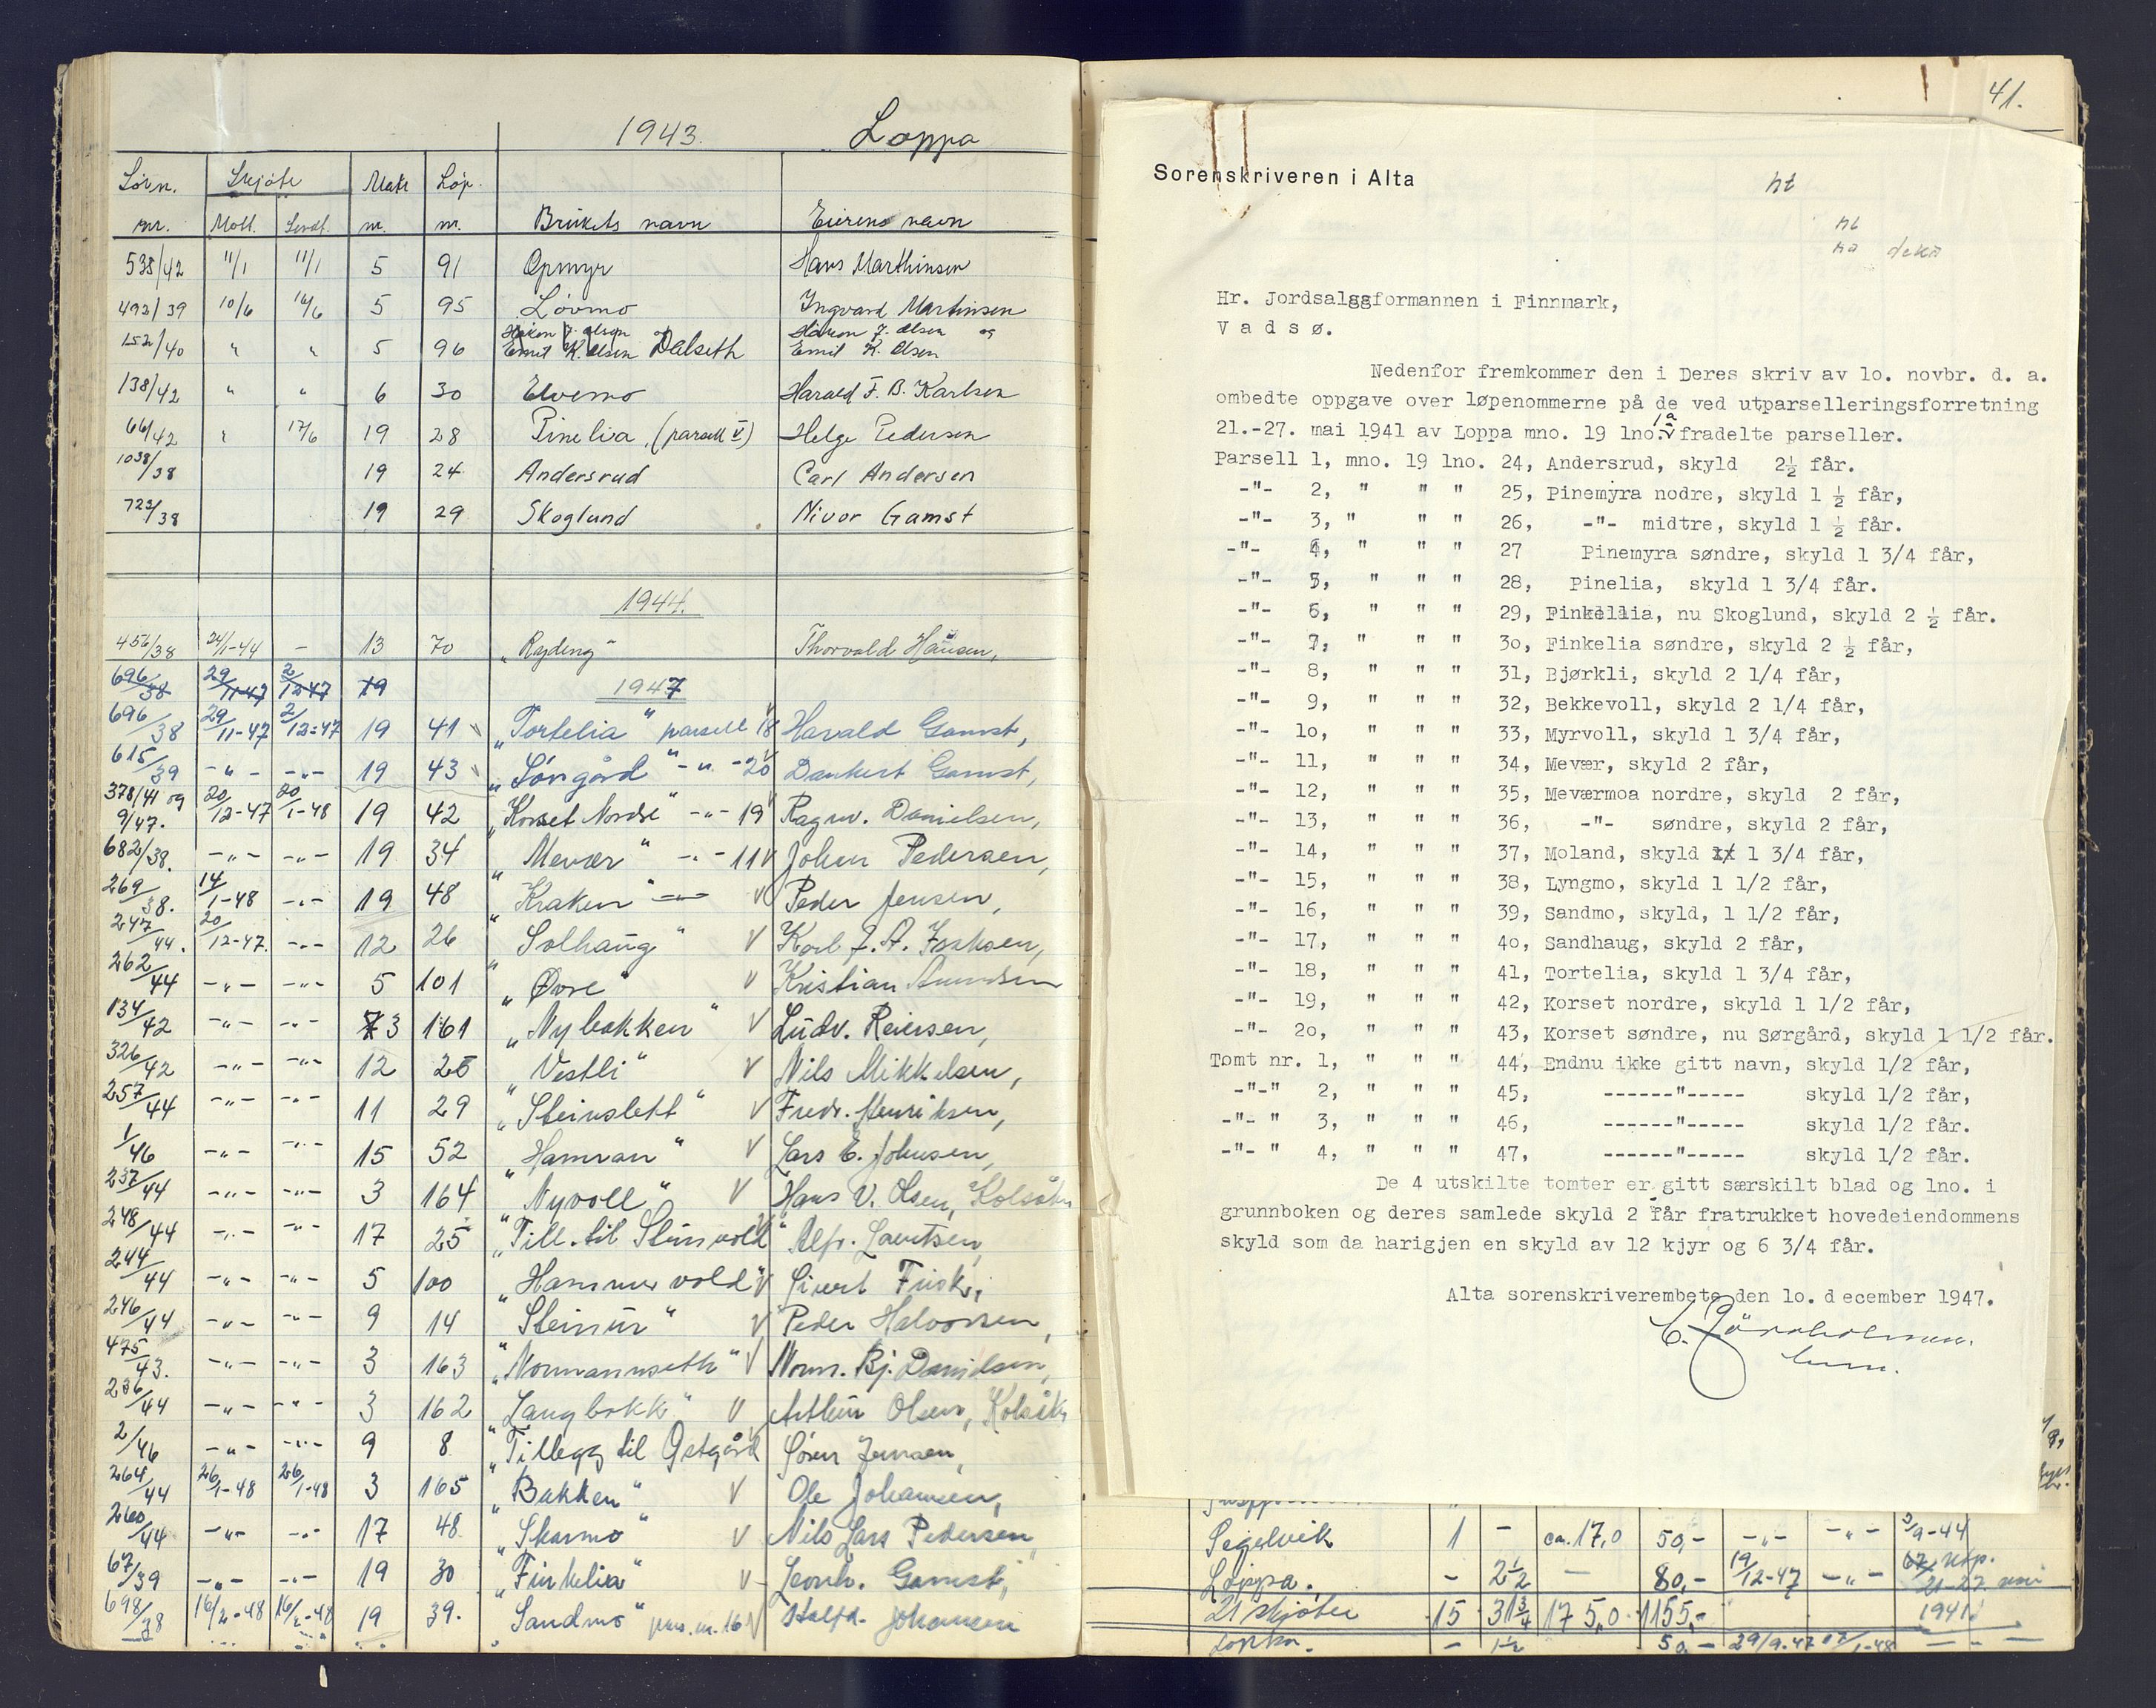 1943. Loppa
Skjøte Matr. Løp.
nr. Mott. Sendt. nr. nr. Brukets navn Eierens navn
538/42 11/1 11/1 5 91 Opmyr Hans Marthinsen
492/39 10/6 16/6 5 95 Løvmo Ingvard Martinsen
152/40 " " 5 96 Håkon J. Olsen og Emil K. Olsen Dalseth Håkon J. Olsen og Emil K. Olsen
138/42 " " 6 30 Elvemo Harald F. B. Karlsen
66/42 " 17/6 19 28 Pinelia, (parsell V) Helge Pedersen
1038/38 19 24 Andersrud Carl Andersen
723/38 19 29 Skoglund Nivor Gamst
1944.
456/38 24/1-44 - 13 70 „Ryding" Thorvald Hansen,
696/38 29/11-47 2/12-47 19 1947
696/38 29/11-47 2/12-47 19 41 „Tortelia" parsell 18 Harald Gamst,
615/39 -"- -"- 19 43 „Sørgård" -"- 20 Dankert Gamst,
378/41 og 9/47. 20/12-47 20/1-48 19 42 „Korset Nordre" -"- 19 Ragnv. Danielsen,
682/38. -"- -"- 19 34 „Mevær" -"- 11 V Johan Pedersen,
269/38. 14/1-48 -"- 19 48 „Kraken" -"- V Peder Jensen,
247/44. 20/12-47. -"- 12 26 „Solhaug" V Karl J. A. Isaksen,
262/44 -"- -"- 5 101 „Øvre" V Kristian Amundsen
134/42 -"- -"- 3 161 „Nybakken" V Ludv. Reiersen,
326/42 -"- -"- 12 25 „Vestli" V Nils Mikkelsen,
257/44 -"- -"- 11 29 „Steinslett" V Fredr. Henriksen,
1/46 -"- -"- 15 52 „Hamran" V Lars E. Johnsen,
237/44 -"- -"- 3 164 „Nyvoll" V Hans V. Olsen,
248/44 -"- -"- 17 25 „Till. til Steinvold" V Alfr. Lauritsen,
244/44 -"- -"- 5 100 „Hammervold" V Sivert Frisk,
246/44 -"- -"- 9 14 „Steinur" V Peder Halvorsen,
475/43. -"- -"- 3 163 „Normannseth" V Norm. Bj. Danielsen,
236/44 -"- -"- 3 162 „Langbakk" V Arthur Olsen,
2/46 -"- -"- 9 8 „Tillegg til Østgård Søren Jensen,
264/44 26/1-48 26/1-48 3 165 „Bakken" V Ole Johansen,
260/44 -"- -"- 17 48 „Skarmo" V Nils Lars Pedersen
67/39 -"- -"- 19 30 „Finkelia" V Leonh. Gamst,
698/38 16/2-48 16/2-48 19 39. „Sandmo" pars. nr. 16 V Johansen
41.
Sorenskriveren i Alta
Hr. Jordsalgsformannen i Finnmark,
V a d s ø.
Nedenfor fremkommer den i Deres skriv av 10. novbr. d. a.
ombedte oppgave over løpenommerne på de ved utparselleringsforretning
21.-27. mai 1941 av Loppa mno. 19 lno. 1a fradelte parseller.
Parsell 1, mno. 19 lno. 24, Andersrud, skyld 2½ får.
-"- 2, " " " 25, Pinemyra nodre, skyld 1 ½ får,
-"- 3, " " " 26, -"- midtre, skyld 1 ½ får.
-"- 4, " " " 27 Pinemyra søndre, skyld 1 3/4 får,
-"- 5, " " " 28, Pinelia, skyld 1 3/4 får.
-"- 6, " " " 29, Finkellia, nu Skoglund, skyld 2 ½ får.
-"- 7, " " " 30, Finkelia søndre, skyld 2 ½ får,
-"- 8, " " " 31, Bjørkli, skyld 2 1/4 får,
-"- 9, " " " 32, Bekkevoll, skyld 2 1/4 får,
-"- 10, " " " 33, Myrvoll, skyld 1 3/4 får,
-"- 11, " " " 34, Mevær, skyld 2 får,
-"- 12, " " " 35, Meværmoa nordre, skyld 2 får,
-"- 13, " " " 36, -"- søndre, skyld 2 får,
-"- 14, " " " 37, Moland, skyld 1 3/4 får,
-"- 15, " " " 38, Lyngmo, skyld 1 1/2 får,
-"- 16, " " " 39, Sandmo, skyld, 1 1/2 får,
-"- 17, " " " 40, Sandhaug, skyld 2 får,
-"- 18, " " " 41, Tortelia, skyld 1 3/4 får,
-"- 19, " " " 42, Korset nordre, skyld 1 1/2 får,
-"- 20, " " " 43, Korset søndre, nu Sørgård, skyld 1 1/2 får.
Tomt nr. 1, " " " 44, Endnu ikke gitt navn, skyld 1/2 får,
-"-" 2, " " " 45, ------"----- skyld 1/2 får,
-"- " 3, " " " 46, ------"----- skyld 1/2 får.
-"- " 4, " " " 47, ------"----- skyld 1/2 får.
De 4 utskilte tomter er gitt særskilt blad og lno. i
grunnboken og deres samlede skyld 2 får fratrukket hovedeiendommens
skyld som da harigjen en skyld av 12 kjyr og 6 3/4 får.
Alta sorenskriverembete den 10. d ecember 1947.
Segelvik 1 - ca. 17,0 50,- -"- -"- 9-44
Loppa. - 2½ - 80,- 19/12-47 -"- 21-27 mai
21 skjøter 15 31¾ 175,0 1155,- 1941
Loppa. - 1½ 50,- 29/9-47